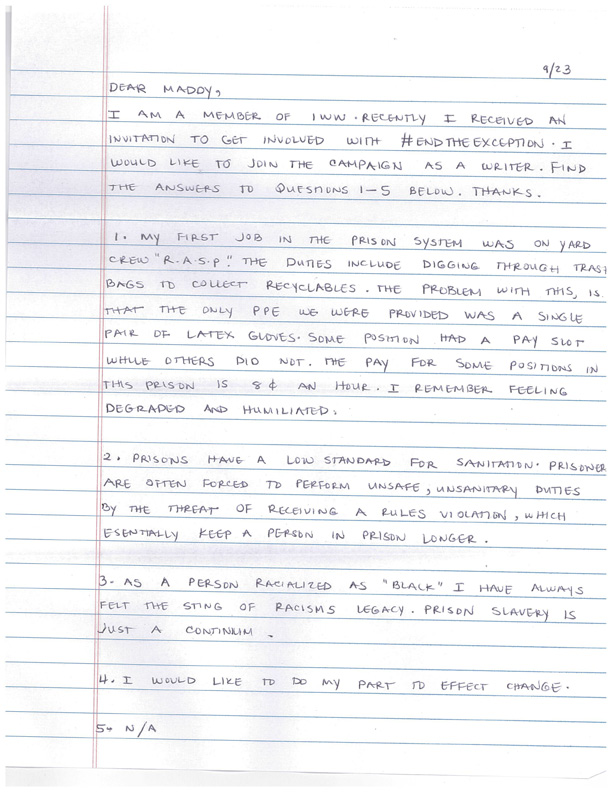 9/23
DEAR MADDY,
I AM A MEMBER OF IWW. RECENTLY I RECEIVED AN
INVITATION TO GET INVOLVED WITH #ENDTHEEXCEPTION. I
WOULD LIKE TO JOIN THE CAMPAIGN AS A WRITER. FIND
THE ANSWERS TO QUESTIONS 1-5 BELOW. THANKS.
1. MY FIRST JOB IN THE PRISON SYSTEM WAS ON YARD
CREW "R.A.S.P." THE DUTIES INCLUDE DIGGING THROUGH TRASH
BAGS TO COLLECT RECYCLABLES. THE PROBLEM WITH THIS, IS
THAT THE ONLY PPE WE WERE PROVIDED WAS A SINGLE
PAIR OF LATEX GLOVES. SOME POSITION HAD A PAY SLOT
WHILE OTHERS DID NOT. THE PAY FOR SOME POSITIONS IN
THIS PRISON IS 8¢ AN HOUR. I REMEMBER FEELING
DEGRADED AND HUMILIATED.
2. PRISONS HAVE A LOW STANDARD FOR SANITATION. PRISONER
ARE OFTEN FORCED TO PERFORM UNSAFE, UNSANITARY DUTIES
BY THE THREAT OF RECEIVING A RULES VIOLATION, WHICH
ESENTIALLY KEEP A PERSON IN PRISON LONGER.
3. AS A PERSON RACIALIZED AS "BLACK" I HAVE ALWAYS
FELT THE STING OF RACISMS LEGACY. PRISON SLAVERY IS
JUST A CONTINIUM.
4. I WOULD LIKE TO DO MY PART TO EFFECT CHANGE.
5. N/A